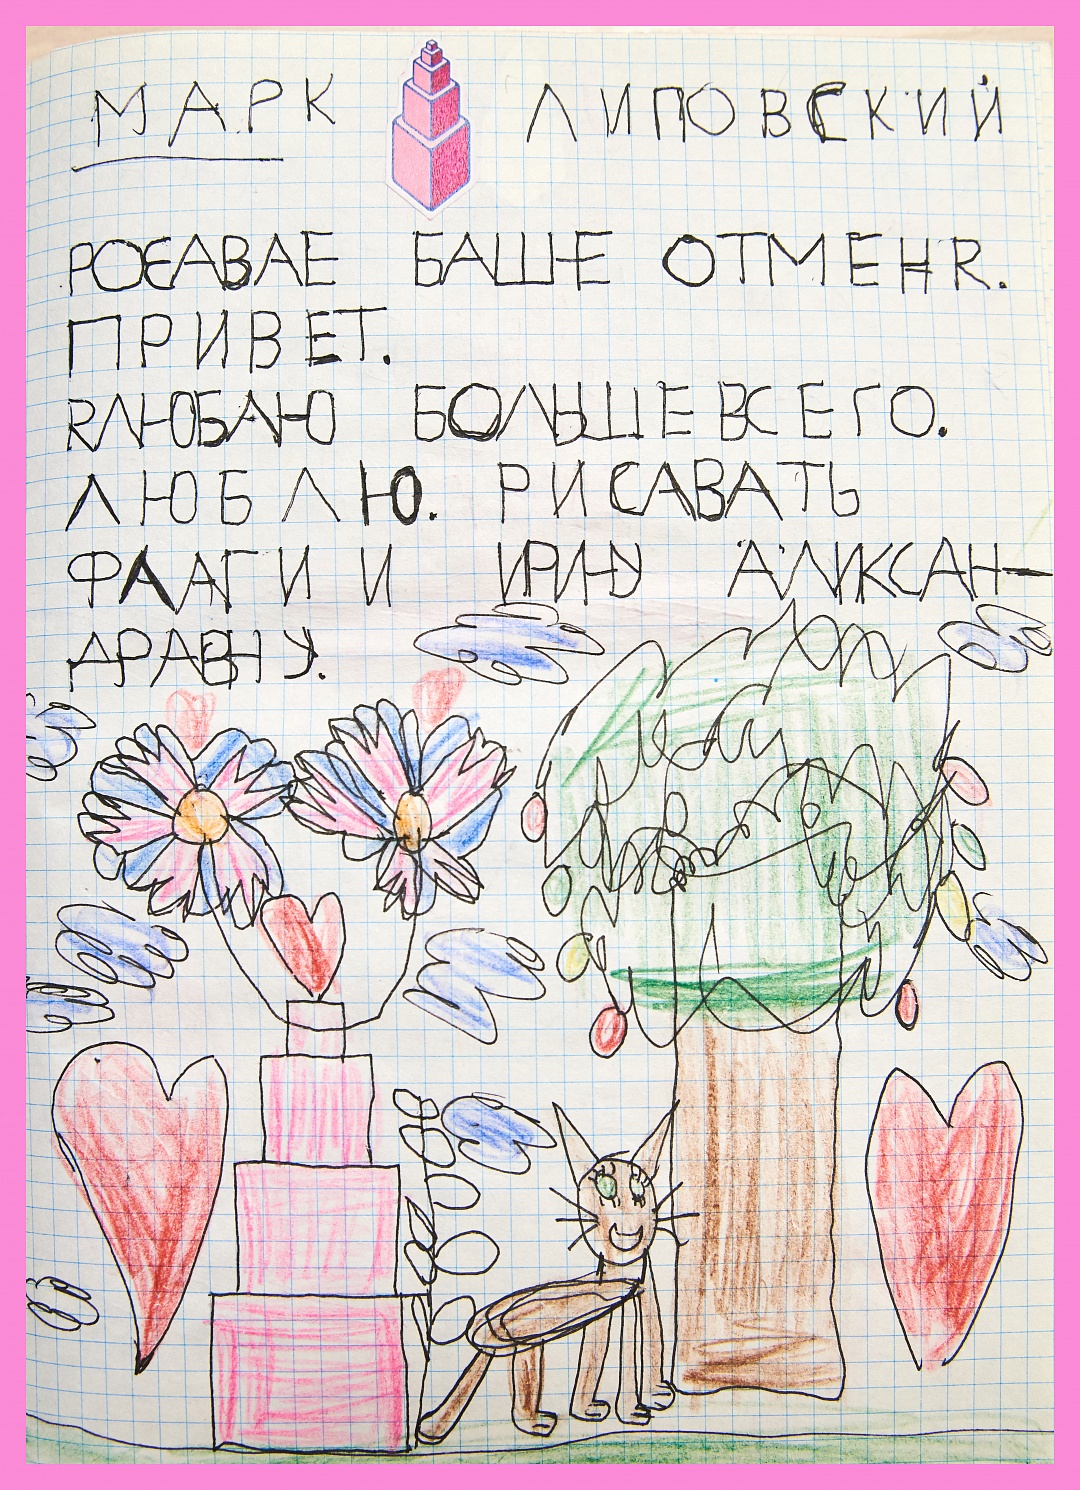 МАРК ЛИПОВСКИЙ
РОСАВАЕ БАШЕ ОТМЕНЯ.
ПРИВЕТ.
ЯЛЮБАЮ БОЛЬШЕ ВСЕГО.
ЛЮБЛЮ. РИСАВАТЬ
ФЛАГИ И ИРИНУ АЛИКСАН-
ДРАВНУ.